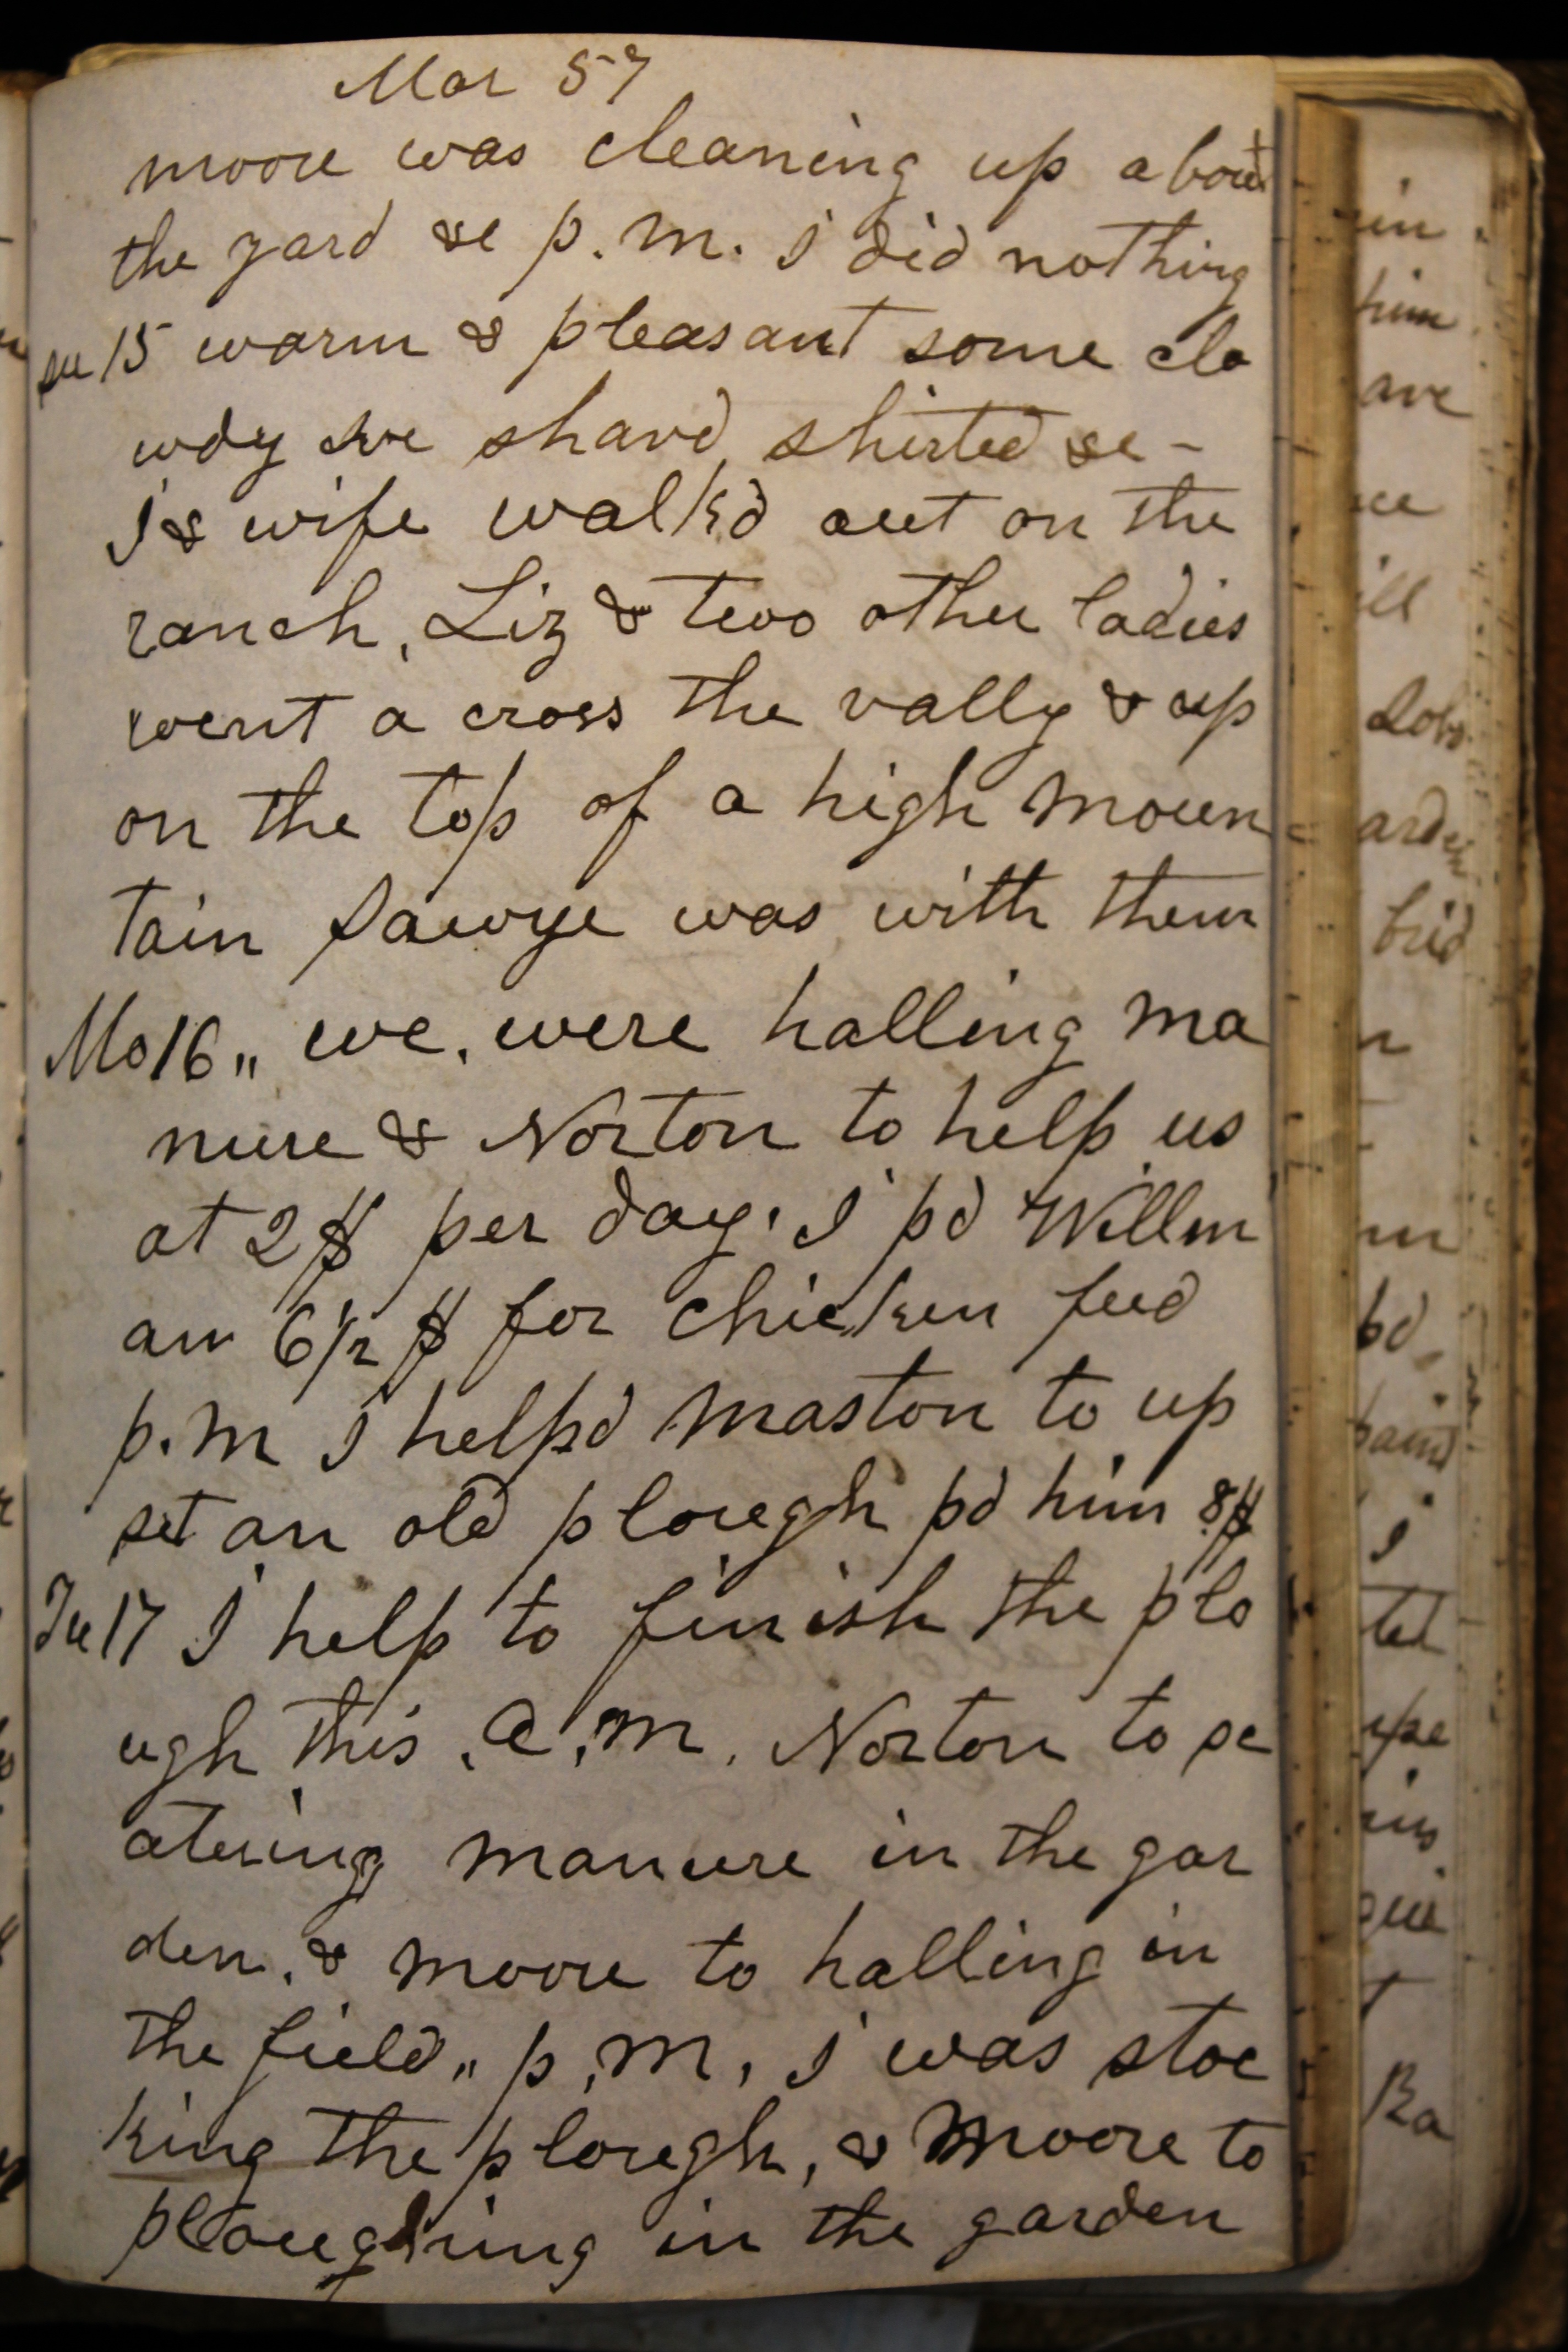 Mar 57
moore was cleaning up about
the yard &c p.m. I did nothing
su 15 warm & pleasant some clo
wdy we shavd, shirted &c -
I & wife walkd out on the
ranch, Liz & two other ladies
went a cross the vally & up
on the top of a high moun
tain Sawye was with them
Mo 16 " we, were halling ma
nure & Norton to help us
at 2 $ per day. I pd Willm
an 6 1/2 $ for chicken feed
p.m I helpd maston to up
set an old plough pd him 8$
Tu 17 I help to finish the plo
ugh this .a.m. Norton to sc
atering manure in the gar
den, & moore to halling in
the field " p.m. I was stoc
king the plough, & moore to
ploughing in the garden
in
him
ave
ill
arden
brid
pd
paind
I
tel
Ra